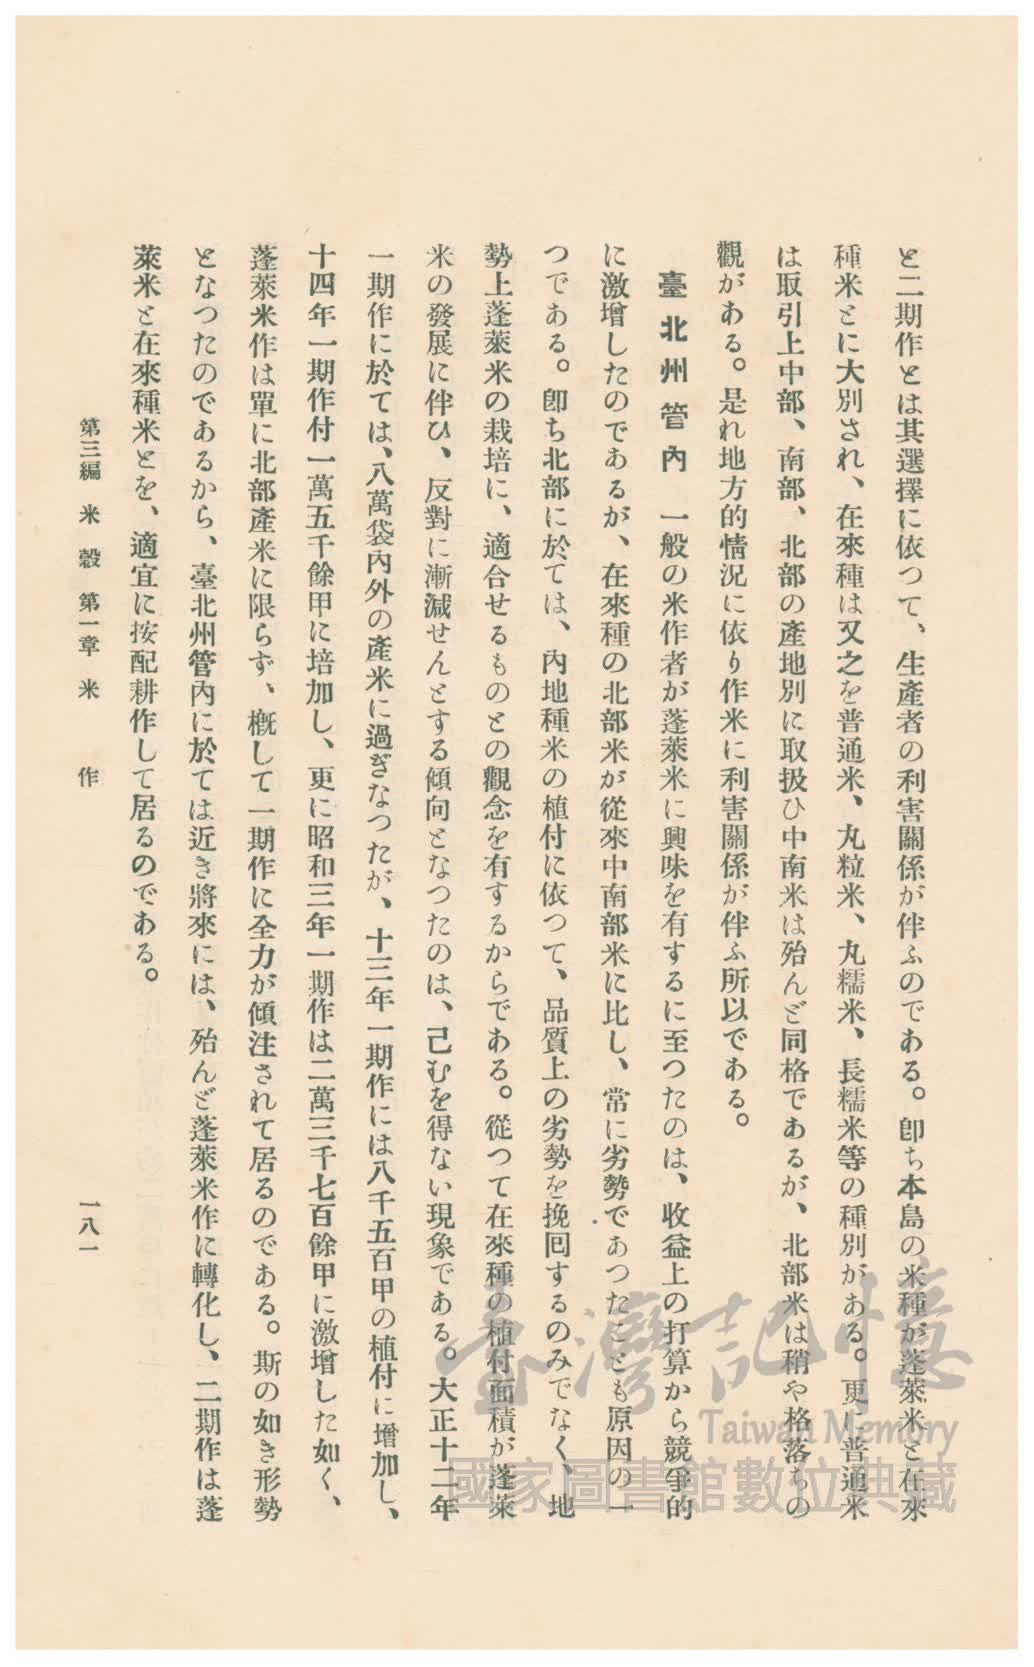 と二期作とは其選擇に依つて、生產者の利害關係が伴ふのである。卽ち本島の米種が蓬萊米と在來
種米とに大別され、在來種は又之を普通米、丸粒米、丸糯米、長糯米等の種別がある。更に普通米
は取引上中部、南部、北部の產地別に取扱ひ中南米は殆んど同格であるが、北部米は稍や格落ちの
觀がある。是れ地方的情況に依り作米に利害關係が伴ふ所以である。
臺北州管內 一般の米作者が蓬萊米に興味を有するに至つたのは、收益上の打算から競爭的
に激增したのであるが、在來種の北部米が從來中南部米に比し、常に劣勢であつたことも原因の一
つである。卽ち北部に於ては、內地種米の植付に依つて、品質上の劣勢を挽回するのみでなく、地
勢上蓬萊米の栽培に、適合せるものとの觀念を有するからである。從つて在來種の植付面積が蓬萊
米の發展に伴ひ、反對に漸減せんとする傾向となつたのは、己むを得ない現象である。大正十二年
一期作に於ては、八萬袋內外の產米に過ぎなつたが、十三年一期作には八千五百甲の植付に增加し、
十四年一期作付一萬五千餘甲に培加し、更に昭和三年一期作は二萬三千七百餘甲に激增した如く、
蓬萊米作は單に北部產米に限らず、槪して一期作に全力が傾注されて居るのである。斯の如き形勢
となつたのであるから、臺北州管內に於ては近き將來には、殆んど蓬萊米作に轉化し、二期作は蓬
萊米と在來種米とを、適宜に按配耕作して居るのである。
第三編 米穀 第一章 米作
一八一
臺灣記憶
Taiwan Memory
國家圖書館數位典藏